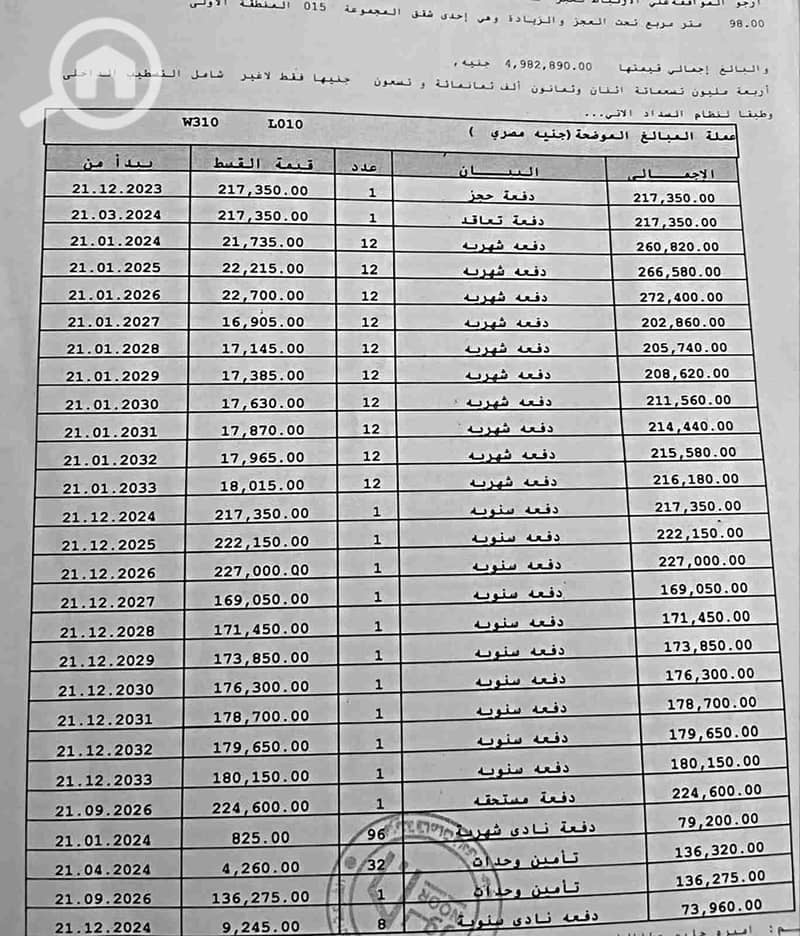 98.00 متر مربع تحت العجز والزيادة وهي إحدى شقق المجموعة 015 المنطقة الأولى
والبالغ إجمالي قيمتها 4,982,890.00 جنيه,
أربعة مليون تسعمائة اثنان وثمانون ألف ثمانمائة و تسعون جنيها فقط لاغير شامل التشطيب الداخلى
وطبقا لنظام السداد الاتي...
عملة المبالغ الموضحة (جنيه مصري ) L010 W310
الإجمـــالى البيـــان عدد قيمة القسط يبدأ من
217,350.00 دفعة حجز 1 217,350.00 21.12.2023
217,350.00 دفعة تعاقد 1 217,350.00 21.03.2024
260,820.00 دفعه شهريه 12 21,735.00 21.01.2024
266,580.00 دفعه شهريه 12 22,215.00 21.01.2025
272,400.00 دفعه شهريه 12 22,700.00 21.01.2026
202,860.00 دفعه شهريه 12 16,905.00 21.01.2027
205,740.00 دفعه شهريه 12 17,145.00 21.01.2028
208,620.00 دفعه شهريه 12 17,385.00 21.01.2029
211,560.00 دفعه شهريه 12 17,630.00 21.01.2030
214,440.00 دفعه شهريه 12 17,870.00 21.01.2031
215,580.00 دفعه شهريه 12 17,965.00 21.01.2032
216,180.00 دفعه شهريه 12 18,015.00 21.01.2033
217,350.00 دفعه سنويه 1 217,350.00 21.12.2024
222,150.00 دفعه سنويه 1 222,150.00 21.12.2025
227,000.00 دفعه سنويه 1 227,000.00 21.12.2026
169,050.00 دفعه سنويه 1 169,050.00 21.12.2027
171,450.00 دفعه سنويه 1 171,450.00 21.12.2028
173,850.00 دفعه سنويه 1 173,850.00 21.12.2029
176,300.00 دفعه سنويه 1 176,300.00 21.12.2030
178,700.00 دفعه سنويه 1 178,700.00 21.12.2031
179,650.00 دفعه سنويه 1 179,650.00 21.12.2032
180,150.00 دفعه سنويه 1 180,150.00 21.12.2033
224,600.00 دفعة مستحقه 1 224,600.00 21.09.2026
79,200.00 دفعة نادى شهرية 96 825.00 21.01.2024
136,320.00 تأمين وحدات 32 4,260.00 21.04.2024
136,275.00 تأمين وحدات 1 136,275.00 21.09.2026
73,960.00 دفعه نادى سنوية 8 9,245.00 21.12.2024
NOOR